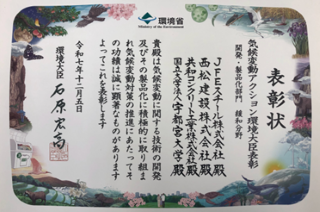 環境省
Ministry of the Environment
表彰状
気候変動アクション環境大臣表彰
開発・製品化部門 緩和分野
JFEスチール株式会社殿
西松建設株式会社殿
共和コンクリート工業株式会社殿
国立大学法人宇都宮大学殿
貴殿は気候変動に関する技術の開発
及びその製品化に積極的に取り組ま
れ気候変動対策の推進にあたってそ
の功績は誠に顕著なものがあります
よってこれを表彰します
令和七年十二月五日
環境大臣
石原宏高